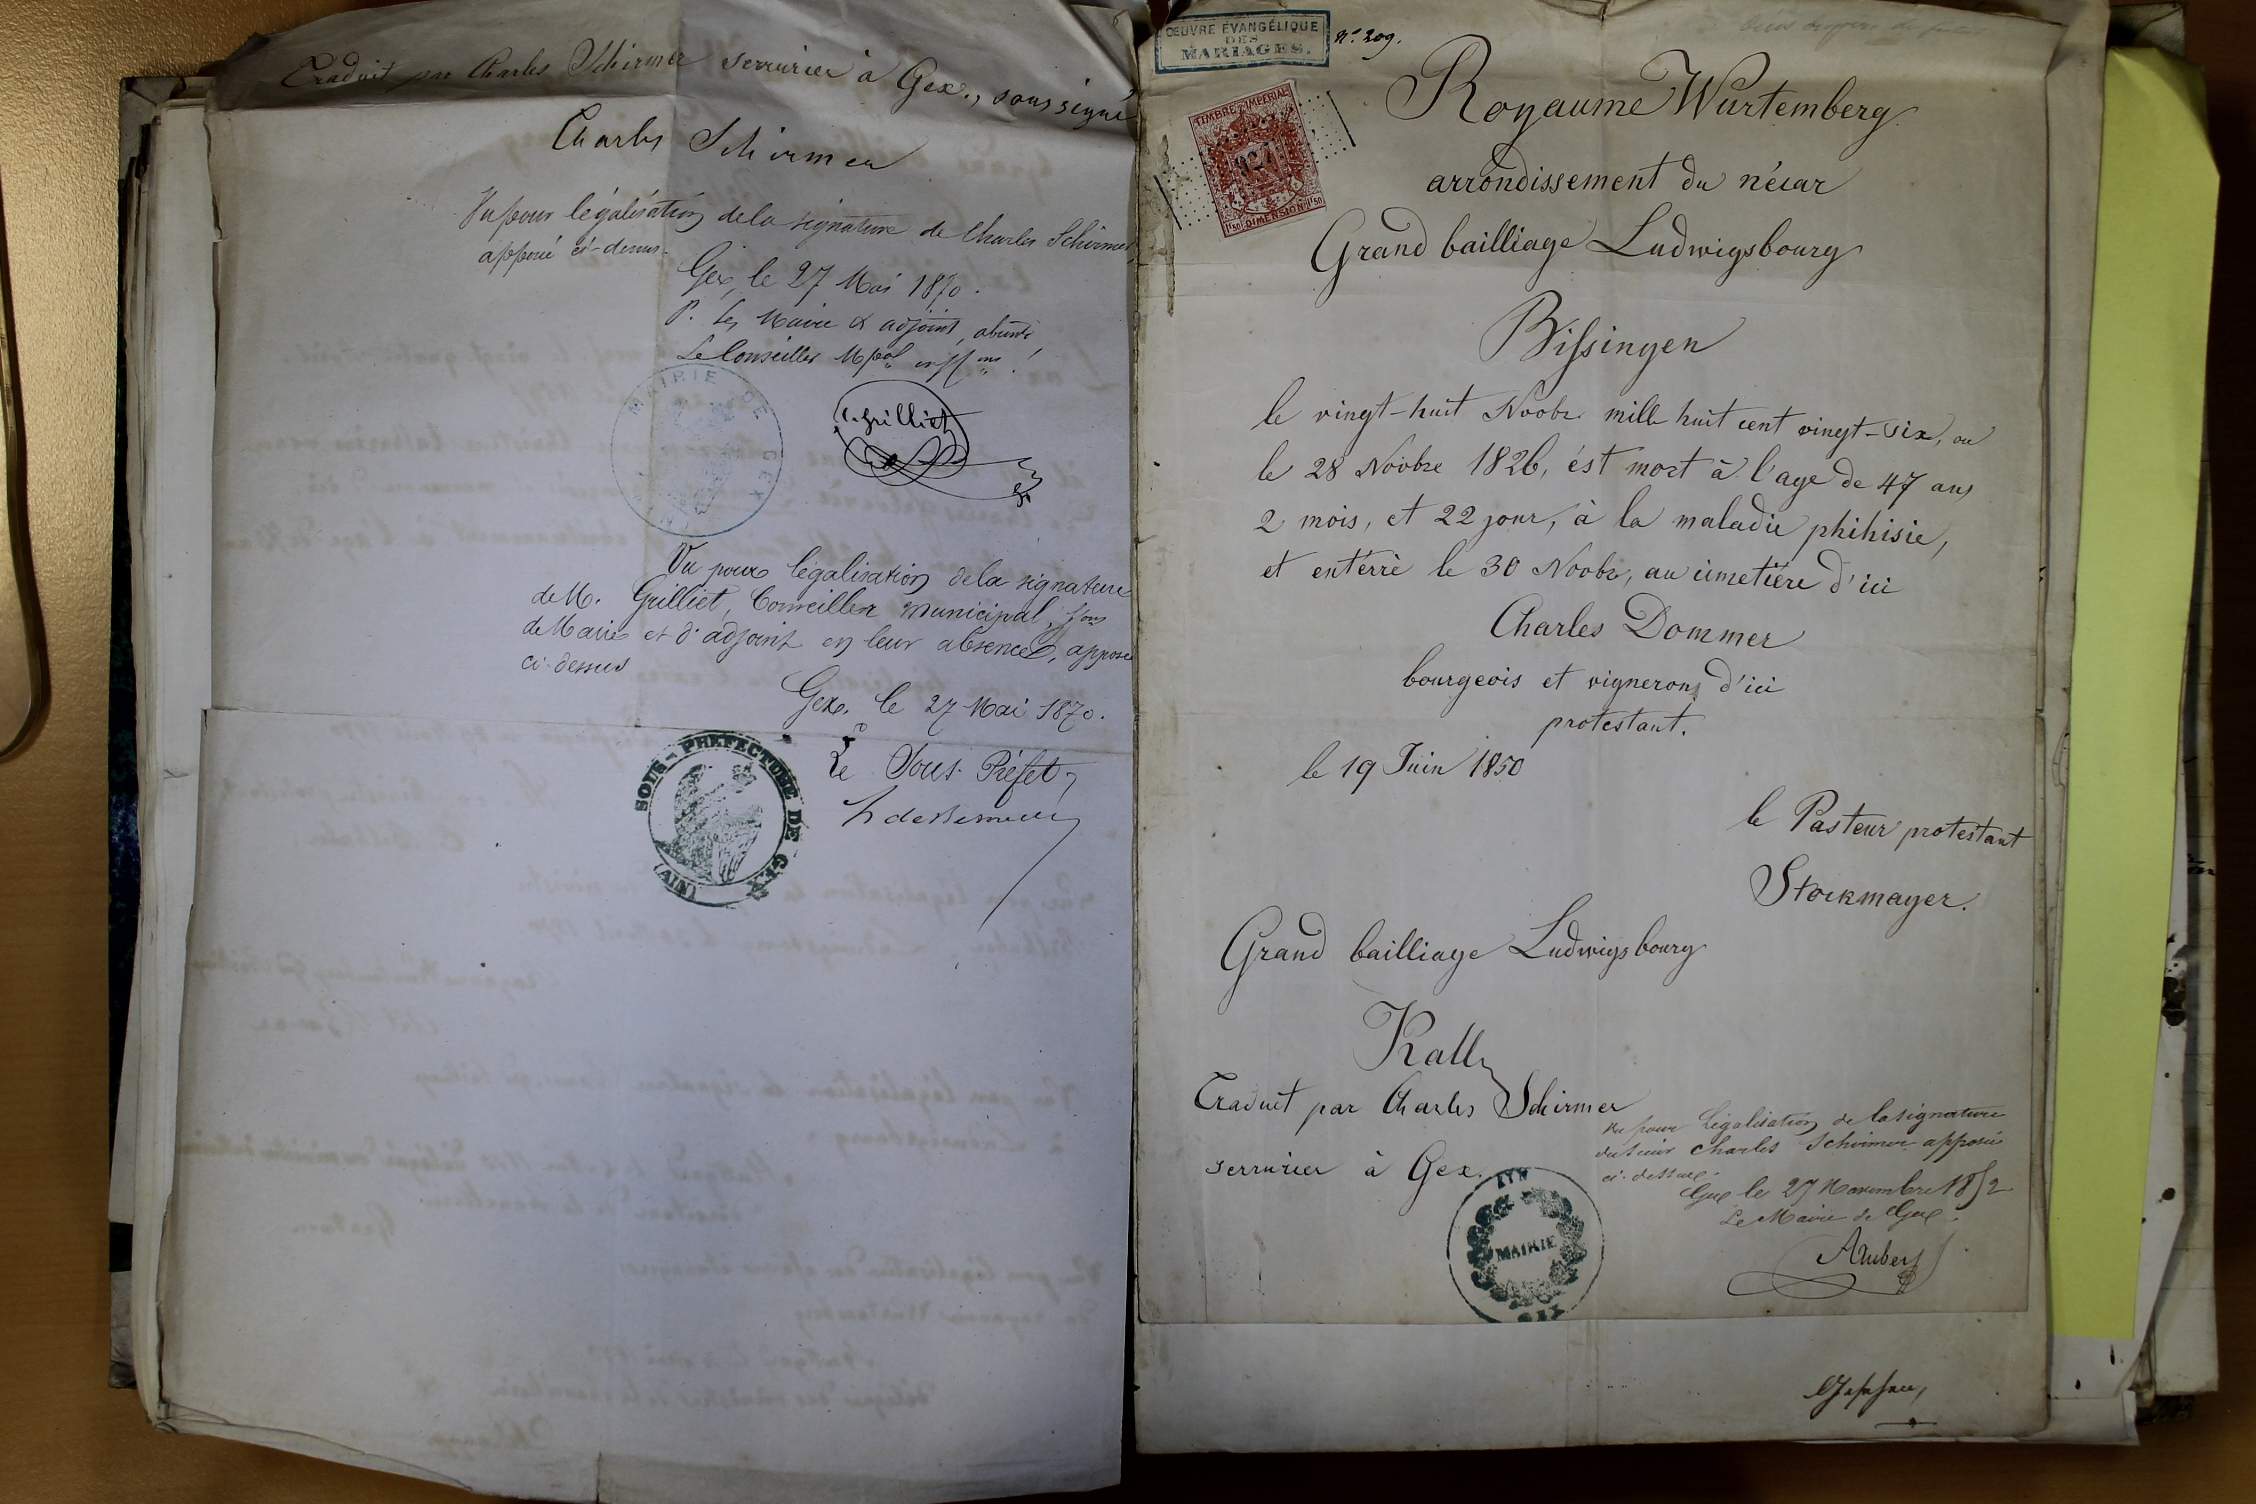 Traduit par Charles Schirmer serrurier à Gex, soussigné
Charles Schirmer
Vu pour légalisation de la signature de Charles Schirmer
apposé ci-dessus.
Gex, le 27 Mai 1870.
P. les Maire & adjoint, absents,
Le Conseiller Mpal
MAIRIE DE GEX
AIN
Grilliet
Vu pour légalisation de la signature
de M. Grilliet, Conseiller municipal, fons
de Maire et d'adjoint en leur absence, apposée
ci-dessus
Gex, le 27 Mai 1870.
Le Sous-Préfet,
SOUS-PREFECTURE DE GEX
(AIN)
ŒUVRE ÉVANGÉLIQUE
DES
MARIAGES.
N° 209.
TIMBRE IMPÉRIAL
927
1f50 DIMENSION 1f50
Royaume Wurtemberg
arrondissement du nécar
Grand bailliage Ludwigsbourg
Bissingen
le vingt-huit Novbr mille huit cent vingt-six, ou
le 28 Novbre 1826, ést mort à l'age de 47 ans
2 mois, et 22 jour, à la maladie phihisie,
et entérré le 30 Novbr, au cimetiére d'ici
Charles Dommer
bourgeois et vigneron d'ici
protestant.
le 19 Juin 1850
le Pasteur protestant
Stockmayer.
Grand bailliage Ludwigsbourg
Kall
Traduit par Charles Schirmer
serrurier à Gex.
Vu pour légalisation de la signature
du sieur Charles Schirmer apposée
ci-dessus.
Gex le 27 Novembre 1852
Le Maire de Gex.
AIN
MAIRIE
GEX